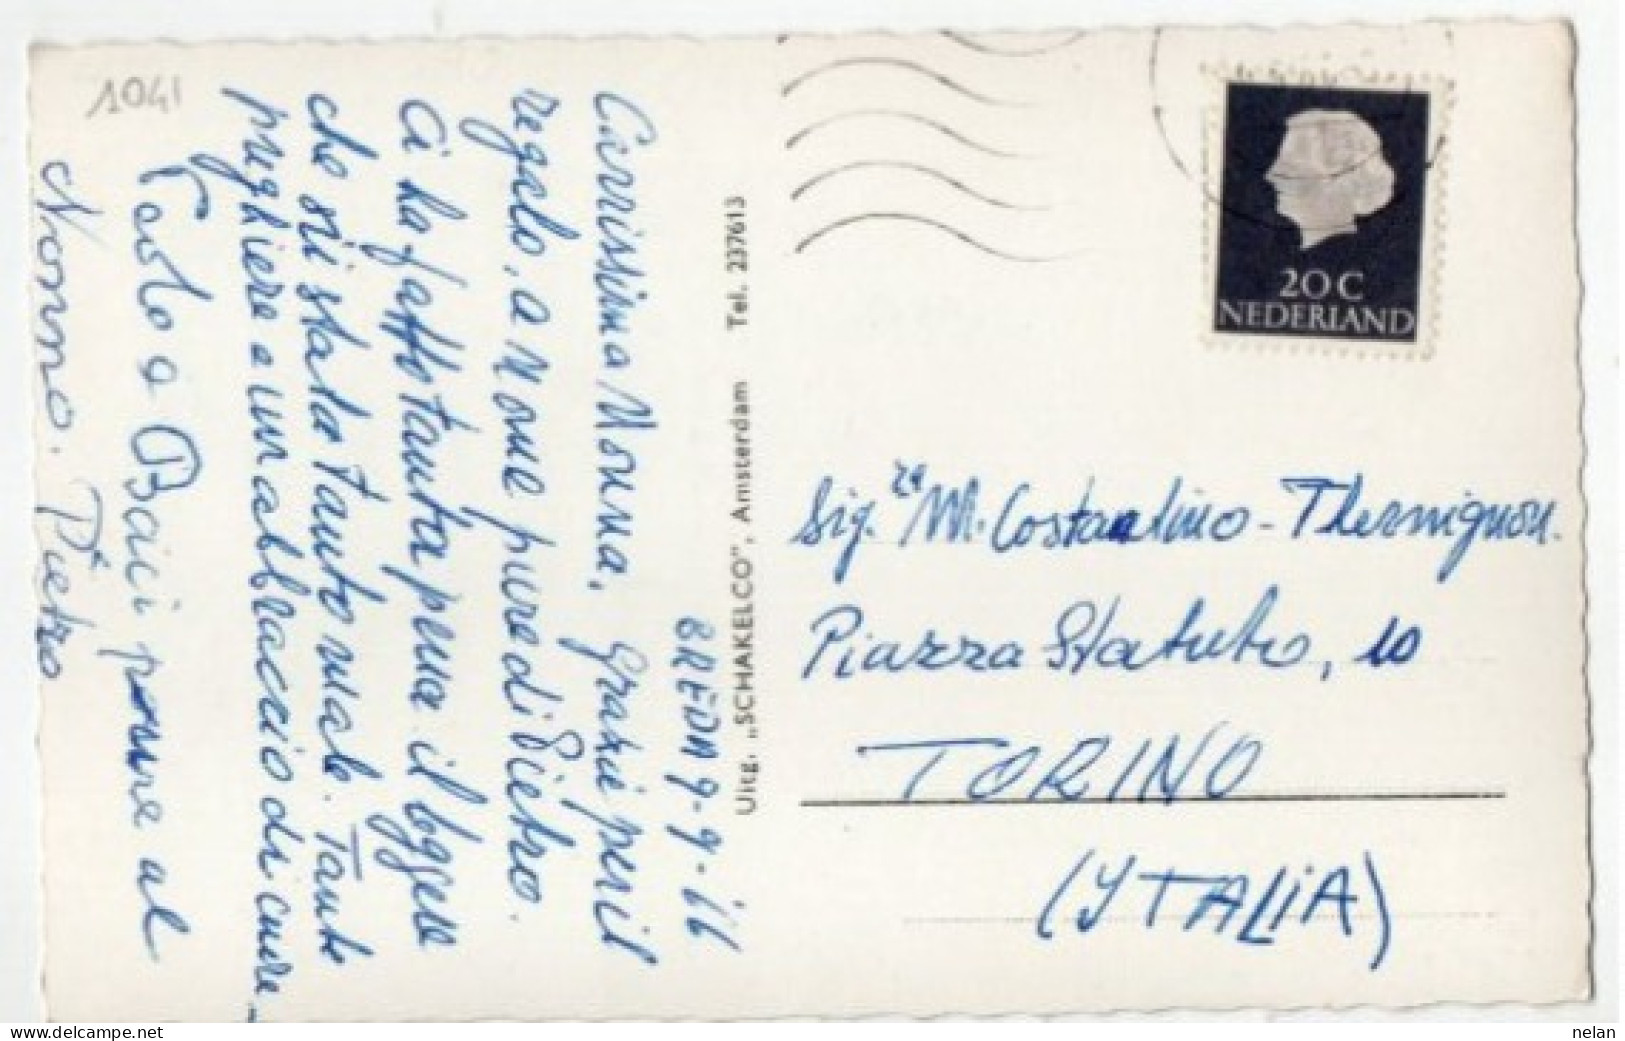 1041
BREDA 9-9-66
Carissima Nonna, grazie per il
regalo, a nome pure di Pietro.
Ci ha fatto tanta pena il leggere
che sei stata tanto male. Tante
preghiere e un abbraccio di cuore
Paolo e Baci pure al
Nonno. Pietro
Uitg. „SCHAKELCO", Amsterdam Tel. 237613
20 C
NEDERLAND
Sig.ra M. Costantino - Thermignon.
Piazza Statuto, 10
TORINO
(ITALIA)
www.delcampe.net
nelan